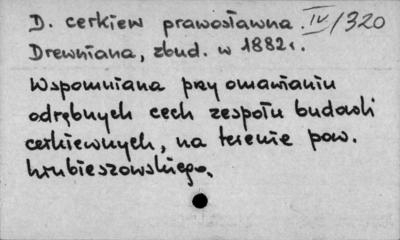 D. cerkiew prawosławna. IV/320
Drewniana, zbud. w 1882r.
Wspomniana przy omawianiu
odrębnych cech zespołu budowli
cerkiewnych, na terenie pow.
hrubieszowskiego.